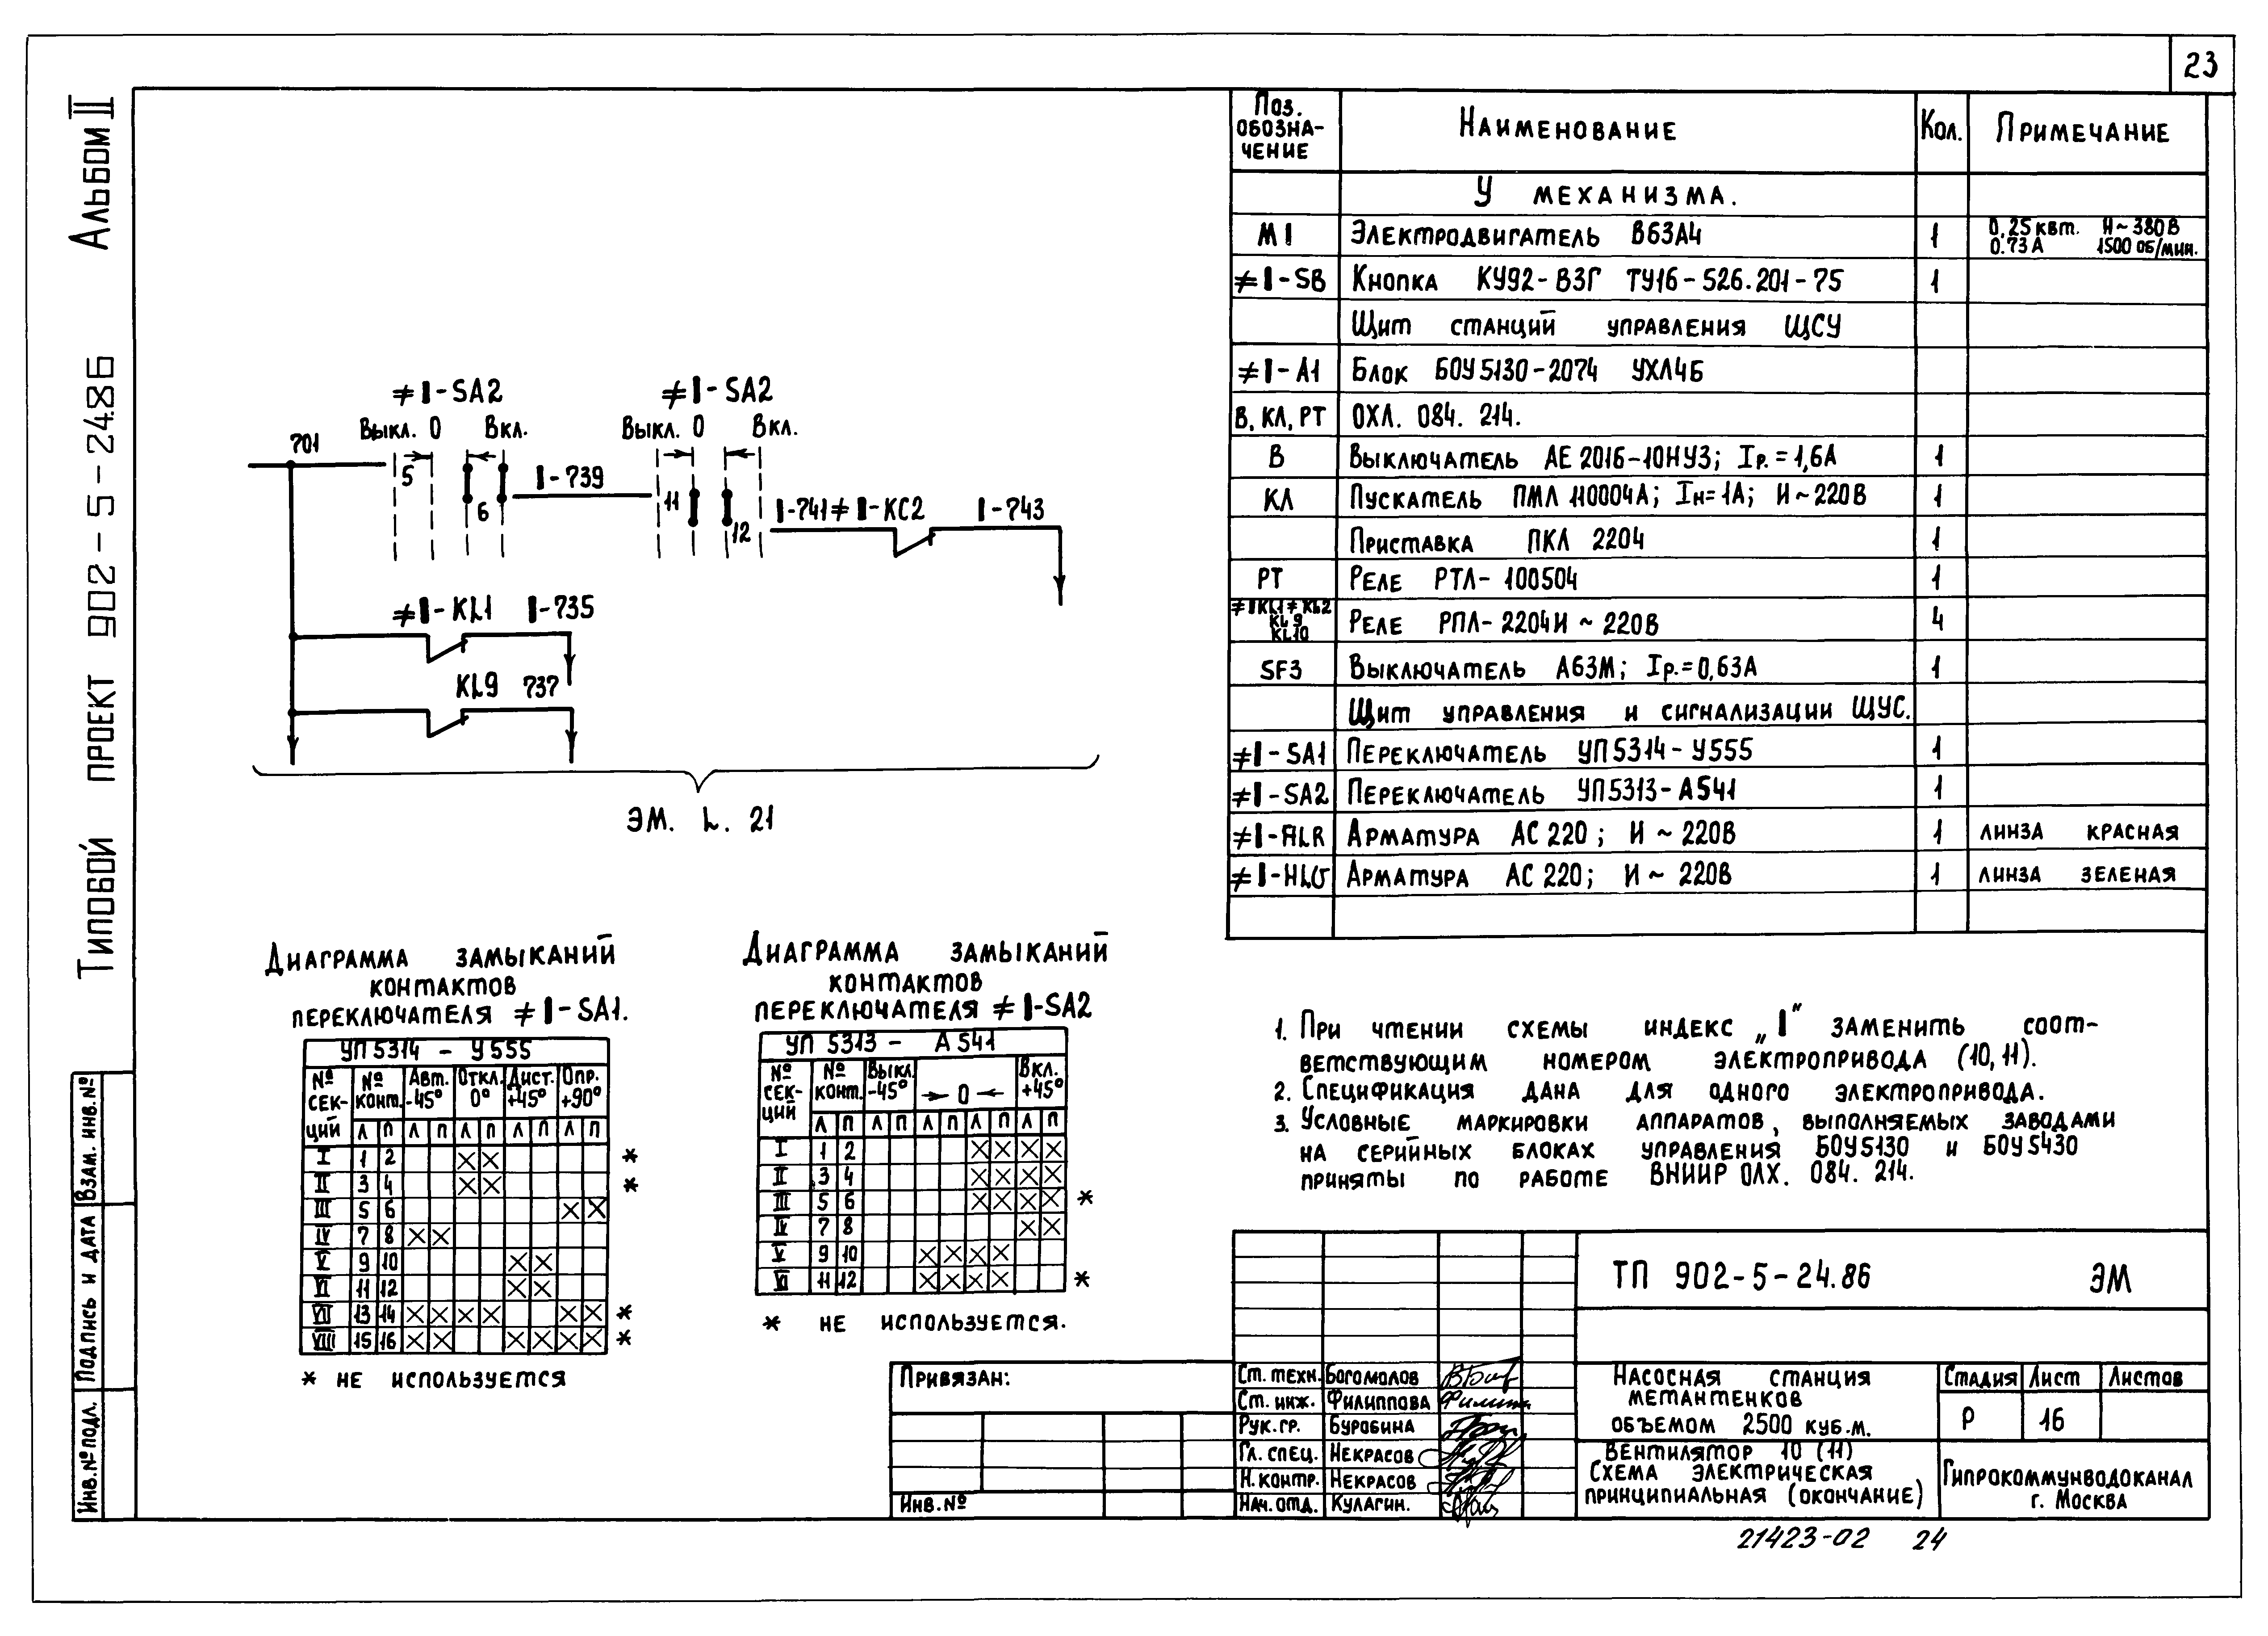 23
Альбом III
Типовой проект 902-5-24.86
Взам. инв. №
Подпись и дата
Инв. № подл.
≠I-SA2
Выкл. 0 Вкл.
701
5
6
I-739
≠I-SA2
Выкл. 0 Вкл.
11
12
I-741 ≠I-КС2 I-743
≠I-KL1 I-735
KL9 737
ЭМ. L. 21
Диаграмма замыканий
контактов
переключателя ≠I-SA1.
УП 5314 - У555
№ секций | № конт. | Авт. -45° | Откл. 0° | Дист. +45° | Опр. +90°
Л П Л П Л П Л П Л П
I 1 2 × × *
II 3 4 × × *
III 5 6 × ×
IV 7 8 × ×
V 9 10 × ×
VI 11 12 × ×
VII 13 14 × × × × × × *
VIII 15 16 × × × × × × *
* не используется
Диаграмма замыканий
контактов
переключателя ≠I-SA2
УП 5313 - А541
№ секций | № конт. | Выкл. -45° | → 0 ← | Вкл. +45°
Л П Л П Л П Л П Л П
I 1 2 × × × ×
II 3 4 × × × ×
III 5 6 × × × × *
IV 7 8 × ×
V 9 10 × × × ×
VI 11 12 × × × × *
* не используется.
Поз. обозначение | Наименование | Кол. | Примечание
У механизма.
М1 Электродвигатель В63А4 1 0,25 квт. И~380В 0.73А 1500 об/мин.
≠I-SB Кнопка КУ92-ВЗГ ТУ16-526.201-75 1
Щит станций управления ЩСУ
≠I-А1 Блок БОУ5130-2074 УХЛ4Б
В, КЛ, РТ ОХЛ. 084. 214.
В Выключатель АЕ2016-10НУЗ; Iр.=1,6А 1
КЛ Пускатель ПМЛ 110004А; Iн=1А; И~220В 1
Приставка ПКЛ 2204 1
РТ Реле РТЛ-100504 1
≠IKL1 ≠KL2 KL9 KL10 Реле РПЛ-2204 И~220В 4
SF3 Выключатель А63М; Iр.=0,63А 1
Щит управления и сигнализации ЩУС.
≠I-SA1 Переключатель УП5314-У555 1
≠I-SA2 Переключатель УП5313-А541 1
≠I-HLR Арматура АС220; И~220В 1 линза красная
≠I-HLG Арматура АС220; И~220В 1 линза зеленая
1. При чтении схемы индекс „I" заменить соот-
ветствующим номером электропривода (10,11).
2. Спецификация дана для одного электропривода.
3. Условные маркировки аппаратов, выполняемых заводами
на серийных блоках управления БОУ5130 и БОУ5430
приняты по работе ВНИИР ОЛХ. 084. 214.
Привязан:
Инв. №
Ст. техн. Богомолов
Ст. инж. Филиппова
Рук. гр. Буробина
Гл. спец. Некрасов
Н. контр. Некрасов
Нач. отд. Кулагин.
ТП 902-5-24.86 ЭМ
Насосная станция
метантенков
объемом 2500 куб.м.
Стадия Лист Листов
Р 16
Вентилятор 10 (11)
Схема электрическая
принципиальная (окончание)
Гипрокоммунводоканал
г. Москва
21423-02 24